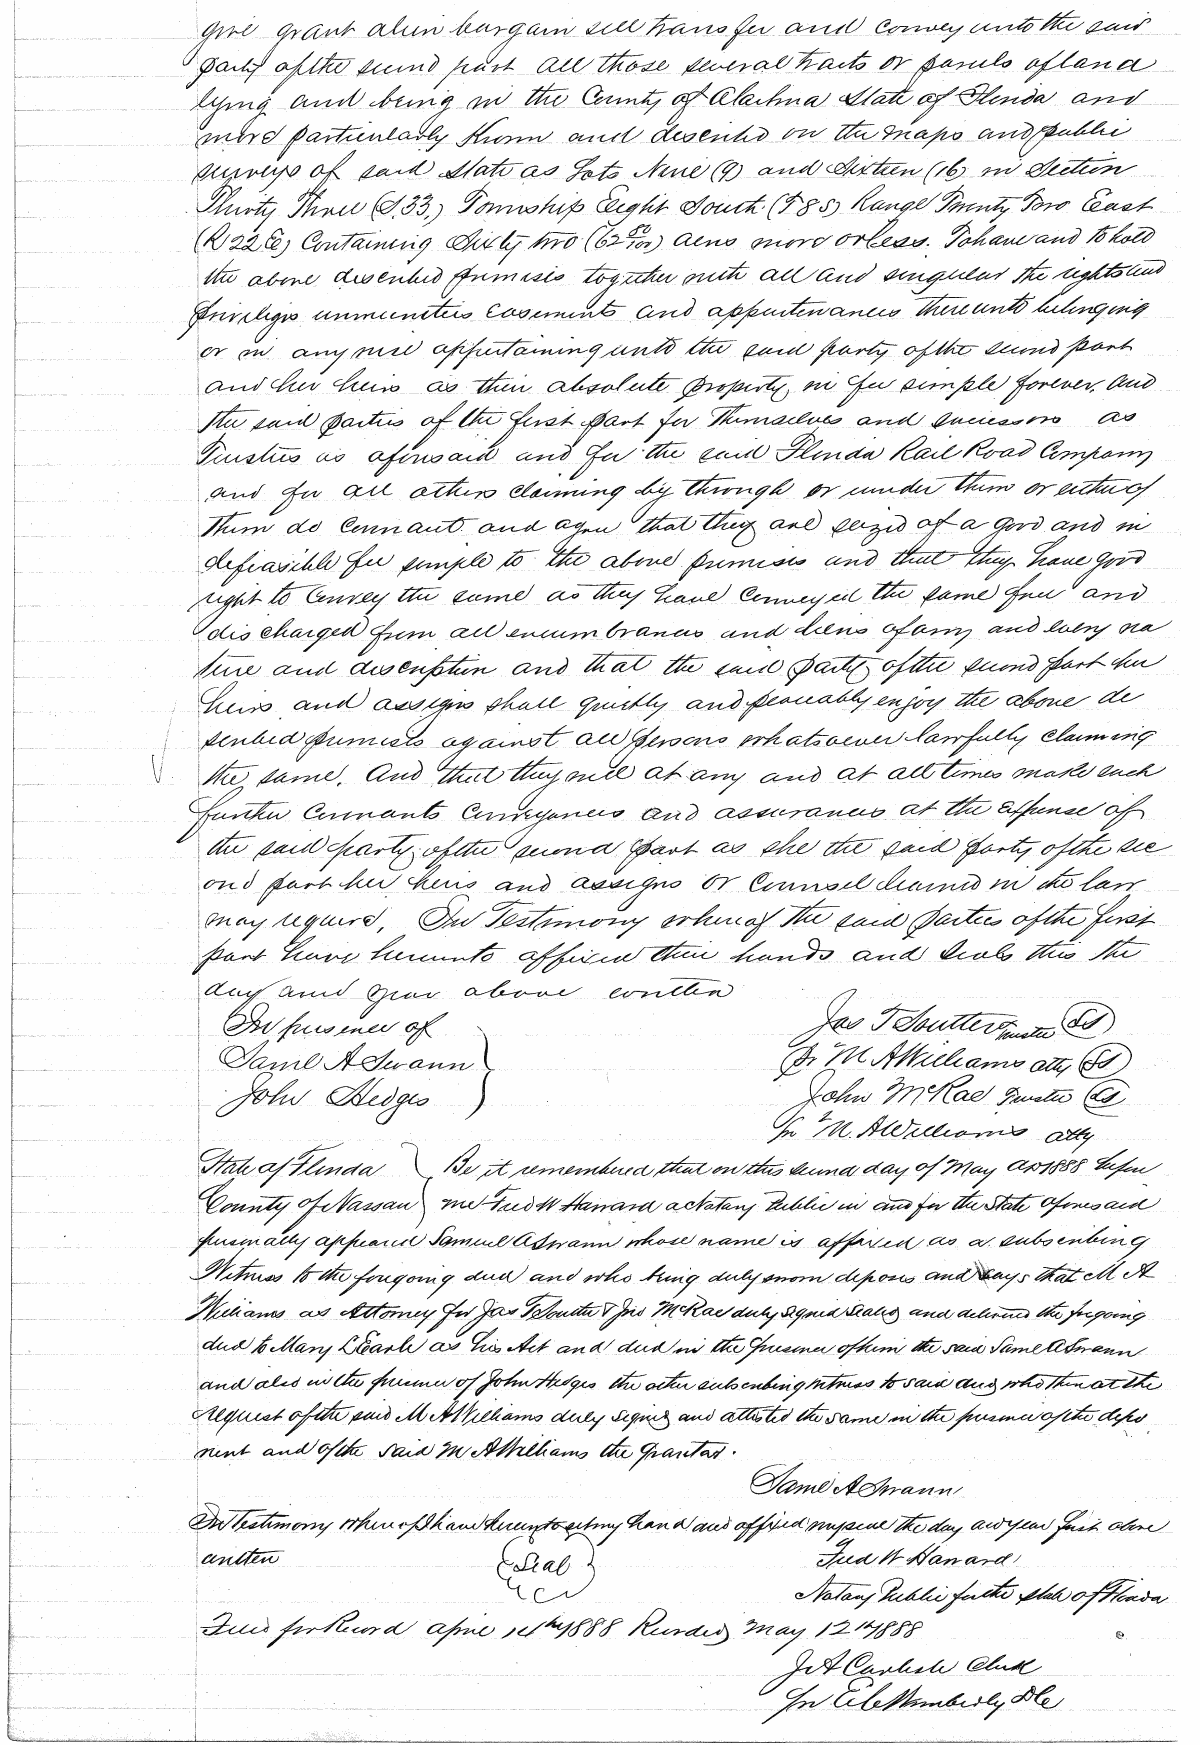 give grant alien bargain sell transfer and convey unto the said
party of the second part all those several tracts or parcels of land
lying and being in the County of Alachua State of Florida and
more particularly known and described on the maps and public
surveys of said State as Lots Nine (9) and Sixteen (16) in Section
Thirty Three (S.33.) Township Eight South (T 8 S) Range Twenty Two East
(R 22 E) Containing Sixty two (62 /100) acres more or less. To have and to hold
the above described premises together with all and singular the rights and
privileges immunities easements and appurtenances thereunto belonging
or in any wise appertaining unto the said party of the second part
and her heirs as their absolute property in fee simple forever. And
the said parties of the first part for themselves and successors as
Trustees as aforesaid and for the said Florida Rail Road Company
and for all others claiming by through or under them or either of
them do covenant and agree that they are seized of a good and in
defeasible fee simple to the above premises and that they have good
right to convey the same as they have conveyed the same free and
discharged from all encumbrances and liens of any and every na
ture and description and that the said party of the second part her
heirs and assigns shall quietly and peaceably enjoy the above de
scribed premises against all persons whatsoever lawfully claiming
the same. And that they will at any and at all times make such
further covenants conveyances and assurances at the expense of
the said party of the second part as she the said party of the sec
ond part her heirs and assigns or counsel learned in the law
may require. In Testimony whereof the said parties of the first
part have hereunto affixed their hands and seals this the
day and year above written
In presence of
Saml A Swann
John Hedges
Jas T Soutter Trustee (LS)
Pr M A Williams atty (LS)
John McRae Trustee (LS)
Pr M. A Williams atty
State of Florida Be it remembered that on this second day of May AD 1888 before
County of Nassau me Fred W Hanard a Notary Public in and for the State aforesaid
personally appeared Samuel A Swann whose name is affixed as a subscribing
Witness to the foregoing deed and who being duly sworn deposes and says that M A
Williams as Attorney for Jas T Soutter & Jno McRae duly signed sealed and delivered the foregoing
deed to Mary L Earle as his Act and deed in the presence of him the said Saml A Swann
and also in the presence of John Hedges the other subscribing witness to said deed who then at the
request of the said M A Williams duly signed and attested the same in the presence of the depo
nent and of the said M A Williams the Grantor.
Saml A Swann
In Testimony whereof I have hereunto set my hand and affixed my seal the day and year first above
written
(Seal)
Fred W Hanard
Notary Public for the State of Florida
Filed for Record 1888 Recorded May 12th 1888
J A Carlisle Clerk
Pr Wimberly D C